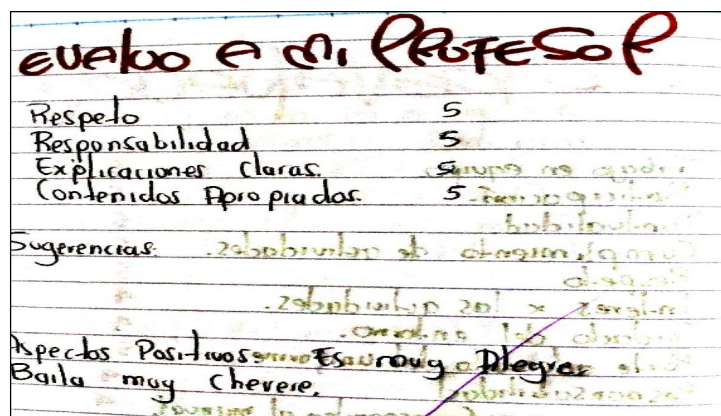 EVALUO A MI PROFESOR
Respeto 5
Responsabilidad 5
Explicaciones Claras. 5
Contenidos Apropiados. 5
Sugerencias:
Aspectos Positivos Es muy Alegre
Baila muy chevere.